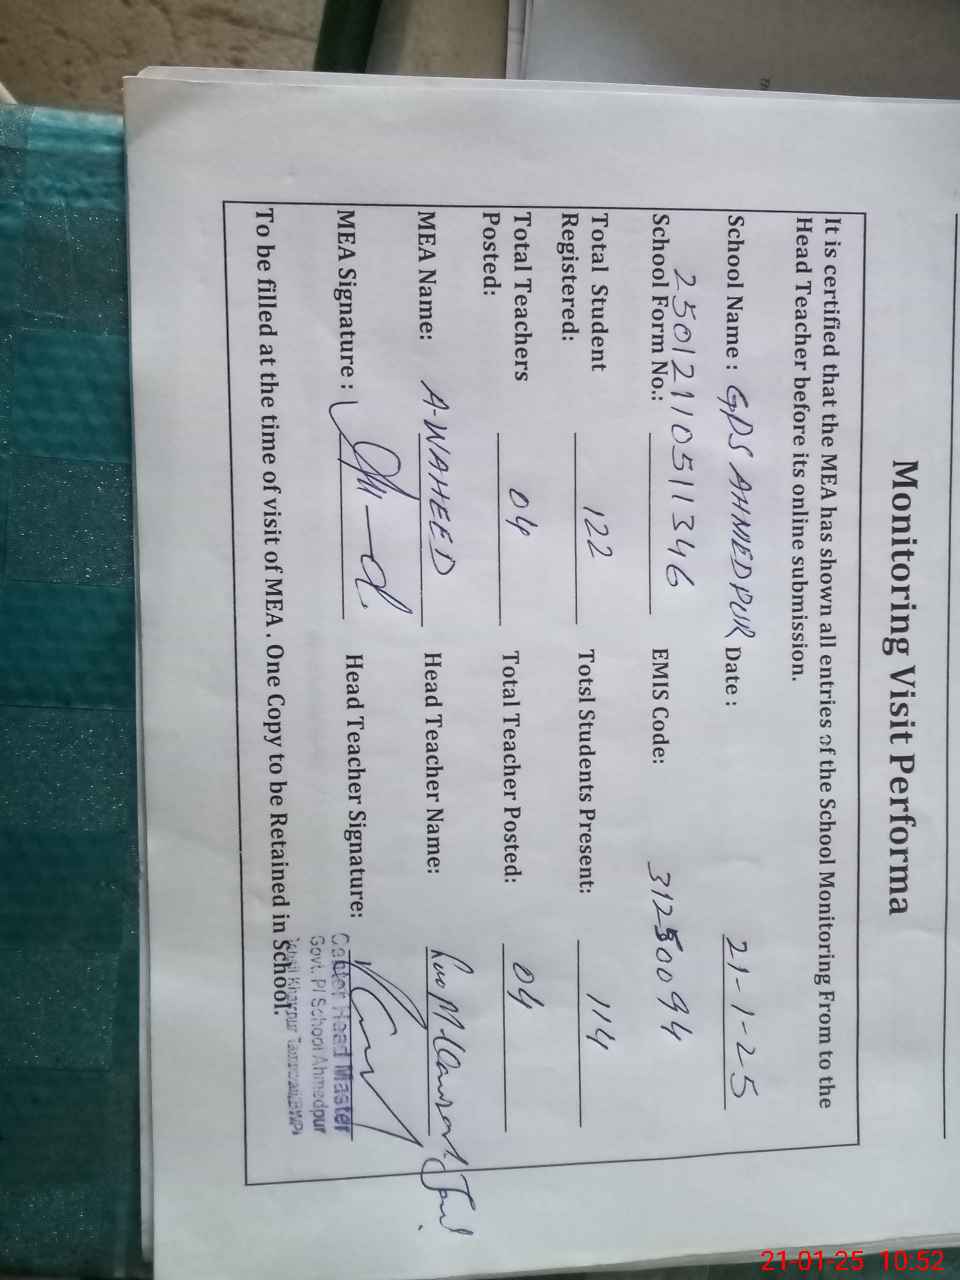 Monitoring Visit Performa
It is certified that the MEA has shown all entries of the School Monitoring From to the
Head Teacher before its online submission.
School Name : GPS AHMEDPUR Date : 21-1-25
School Form No.: 25012110511346 EMIS Code: 31250094
Total Student Registered: 122 Totsl Students Present: 114
Total Teachers Posted: 04 Total Teacher Posted: 04
MEA Name: A-WAHEED Head Teacher Name:
MEA Signature : Head Teacher Signature:
Head Master
Govt. P/ School Ahmedpur
Khairpur
To be filled at the time of visit of MEA . One Copy to be Retained in School.
21-01-25 10:52